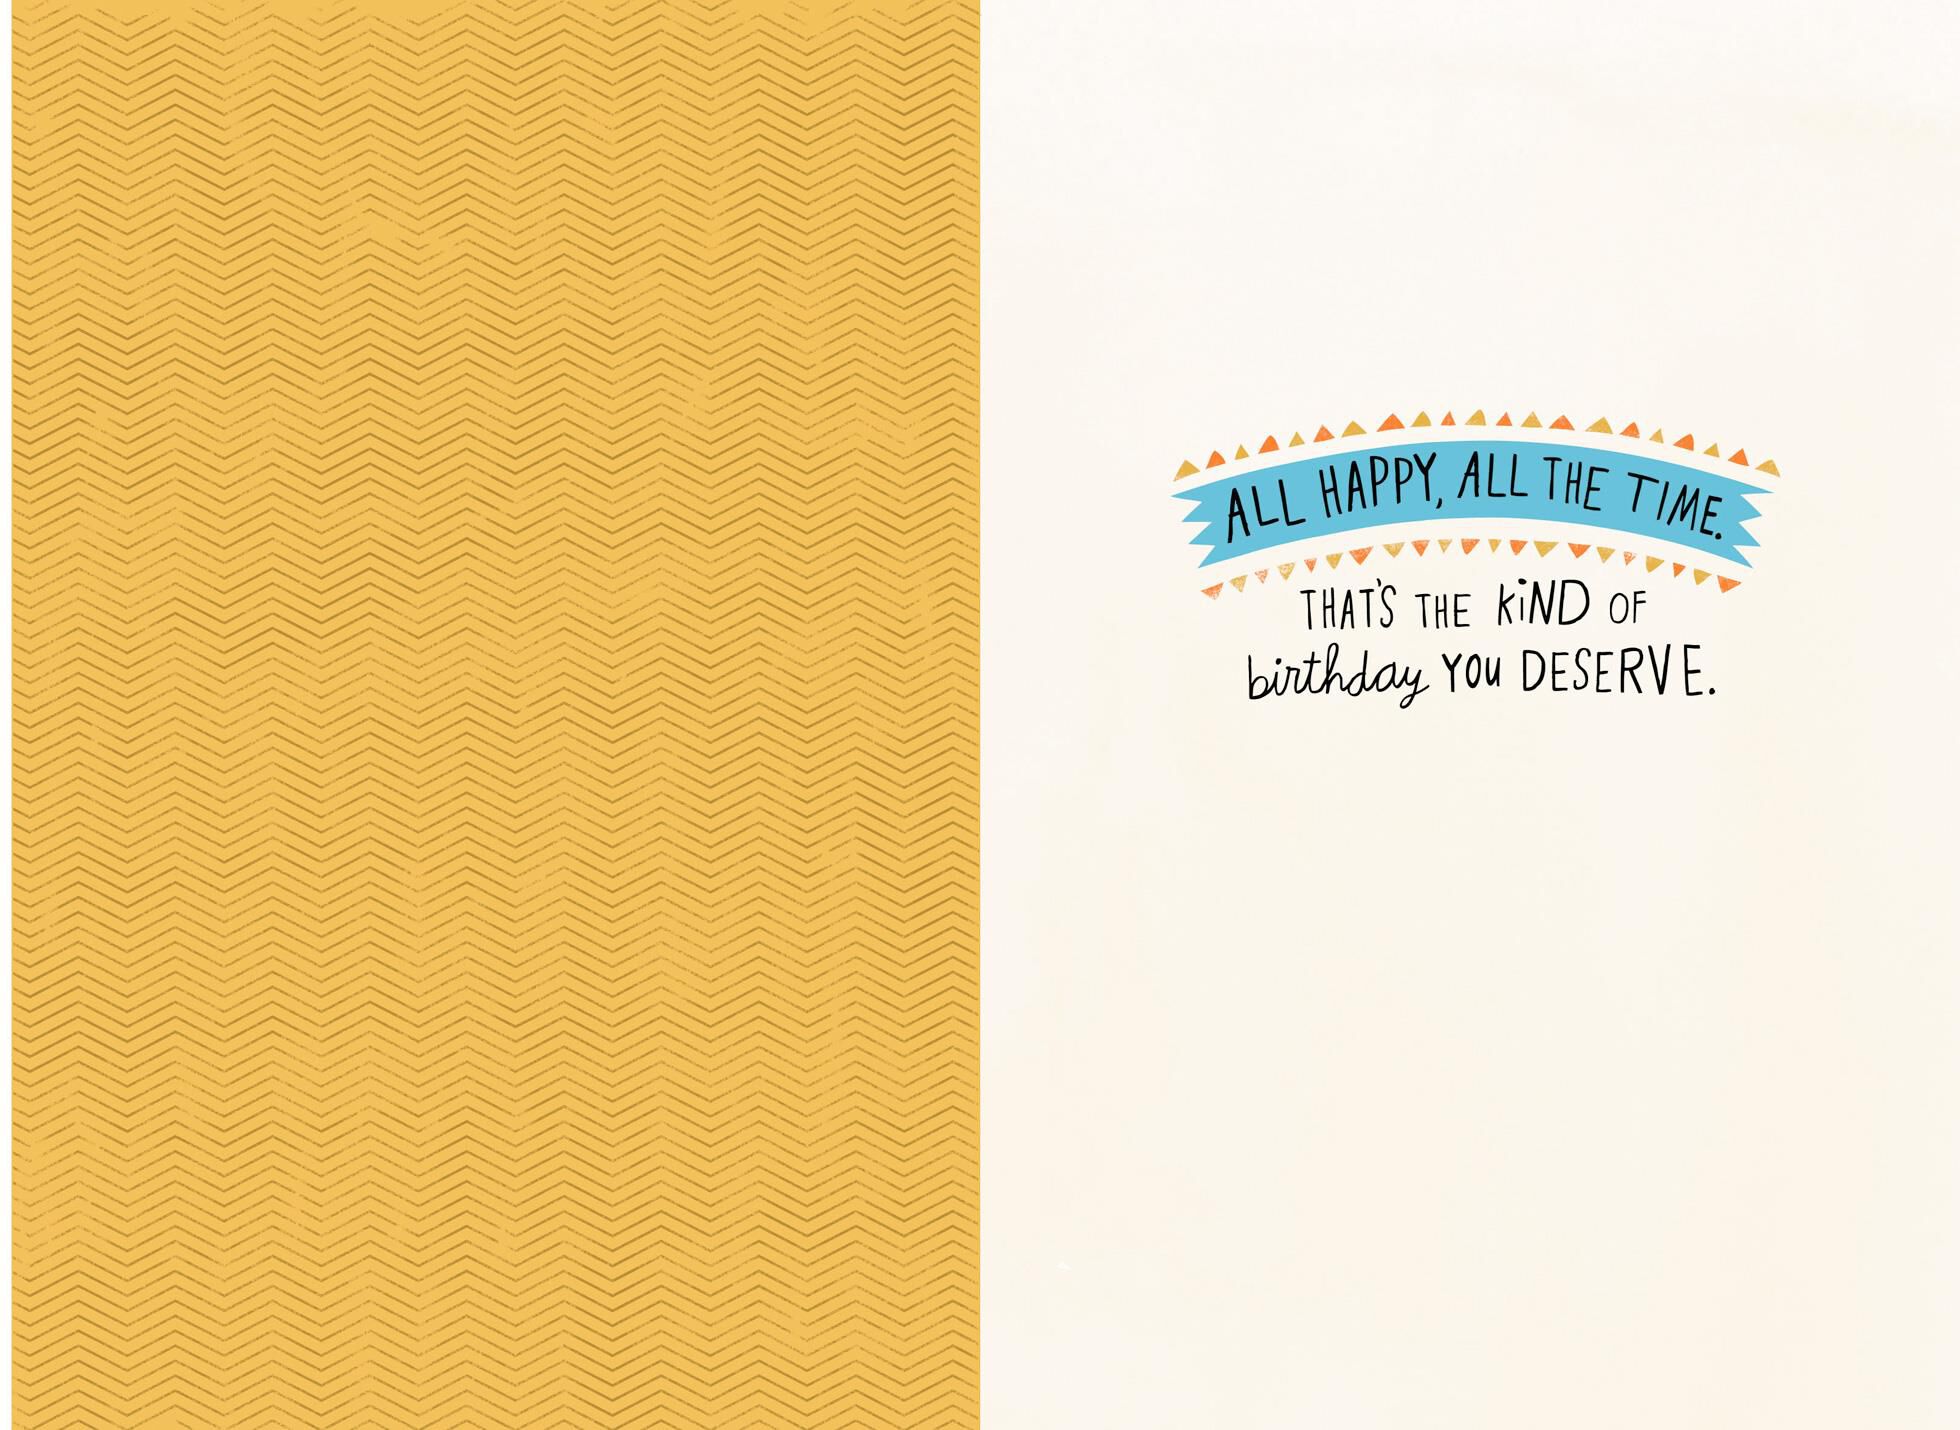 ALL HAPPY, ALL THE TIME.
THAT'S THE KiND OF
birthday YOU DESERVE.